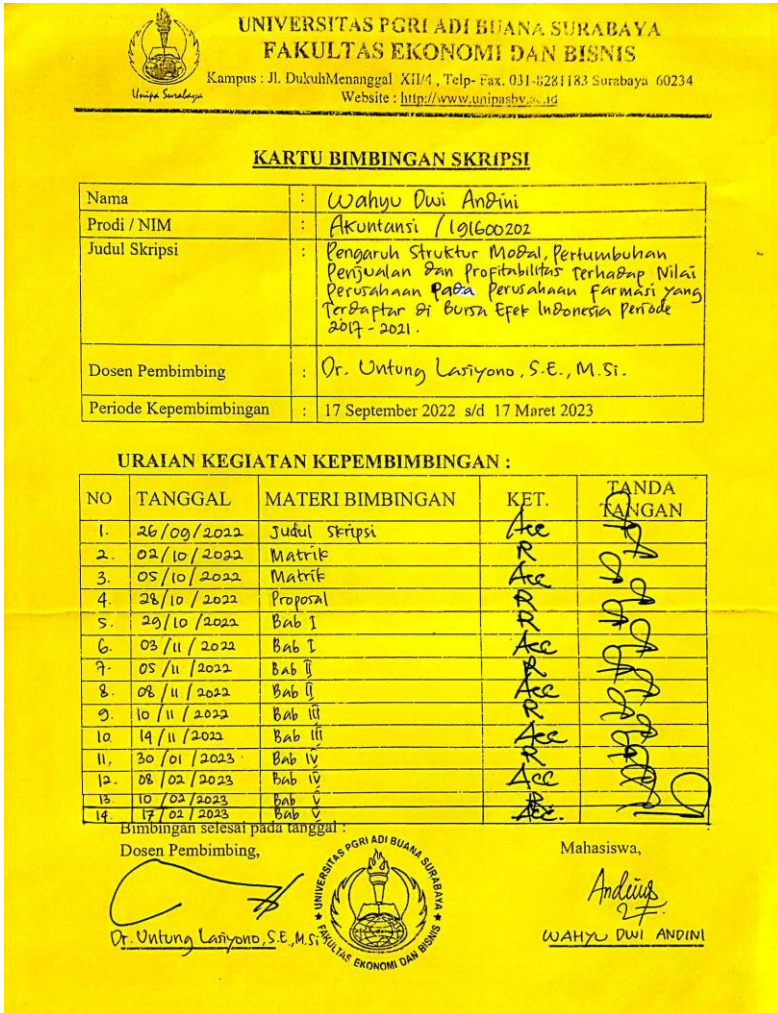 UNIVERSITAS PGRI ADI BUANA SURABAYA
FAKULTAS EKONOMI DAN BISNIS
Kampus : Jl. DukuhMenanggal XII/4 , Telp- Fax. 031-8281183 Surabaya 60234
Website : http://www.unipasby.ac.id
Unipa Surabaya
KARTU BIMBINGAN SKRIPSI
Nama : Wahyu Dwi Andini
Prodi / NIM : Akuntansi / 191600202
Judul Skripsi : Pengaruh Struktur Modal, Pertumbuhan
Penjualan dan Profitabilitas Terhadap Nilai
Perusahaan Pada Perusahaan Farmasi yang
Terdaptar di Bursa Efek Indonesia Periode
2017 - 2021.
Dosen Pembimbing : Dr. Untung Lasiyono, S.E., M.Si.
Periode Kepembimbingan : 17 September 2022 s/d 17 Maret 2023
URAIAN KEGIATAN KEPEMBIMBINGAN :
NO TANGGAL MATERI BIMBINGAN KET. TANDA TANGAN
1. 26/09/2022 Judul Skripsi Acc
2. 02/10/2022 Matrik R
3. 05/10/2022 Matrik Acc
4. 28/10/2022 Proposal R
5. 29/10/2022 Bab I R
6. 03/11/2022 Bab I Acc
7. 05/11/2022 Bab II R
8. 08/11/2022 Bab II Acc
9. 10/11/2022 Bab III R
10 14/11/2022 Bab III Acc
11. 30/01/2023 Bab IV R
12. 08/02/2023 Bab IV Acc
13. 10/02/2023 Bab V R
14. 17/02/2023 Bab V Acc.
Bimbingan selesai pada tanggal :
Dosen Pembimbing, Mahasiswa,
UNIVERSITAS PGRI ADI BUANA SURABAYA
FAKULTAS EKONOMI DAN BISNIS
Dr. Untung Lasiyono, S.E., M.Si WAHYU DWI ANDINI